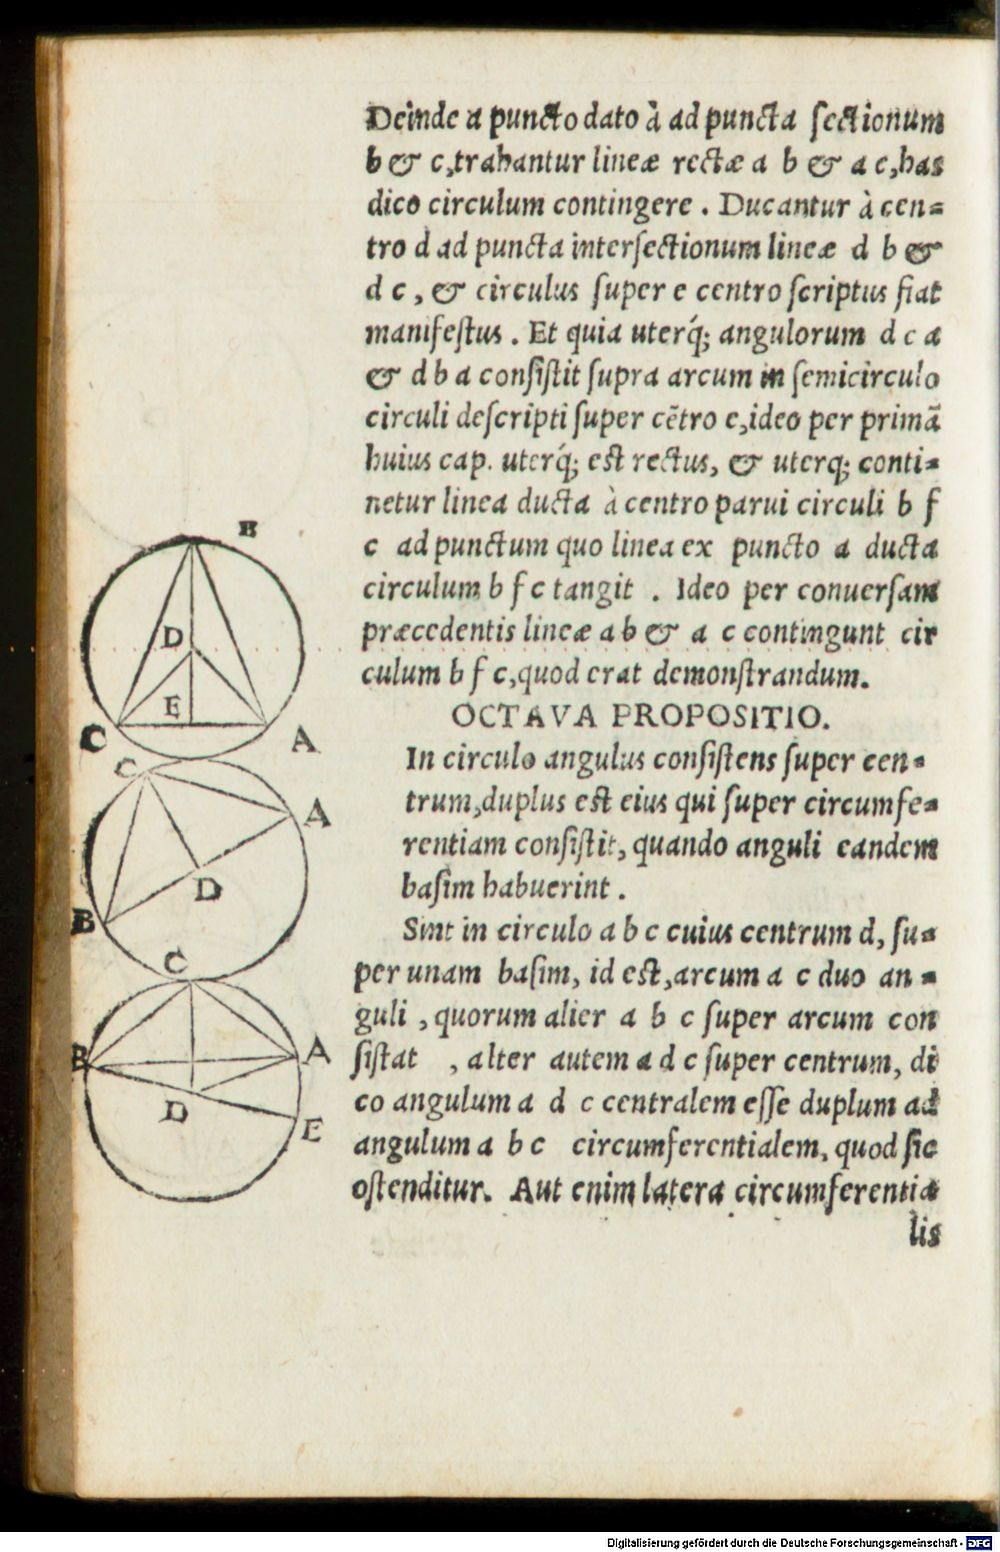 Deinde a puncto dato à ad puncta ſectionum
b & c,trahantur lineæ rectæ a b & a c,has
dico circulum contingere . Ducantur à cen=
tro d ad puncta interſectionum lineæ d b &
d c , & circulus ſuper e centro ſcriptus fiat
manifeſtus . Et quia uterq́; angulorum d c a
& d b a conſiſtit ſupra arcum in ſemicirculo
circuli deſcripti ſuper cẽtro e,ideo per primã
huius cap. uterq́; est rectus, & uterq; conti=
netur linea ducta à centro parui circuli b f
c ad punctum quo linea ex puncto a ducta
circulum b f c tangit . Ideo per conuerſam
præcedentis lineæ a b & a c contingunt cir
culum b f c,quod erat demonſtrandum.
OCTAVA PROPOSITIO.
In circulo angulus conſiſtens ſuper cen=
trum,duplus est eius qui ſuper circumfe=
rentiam conſiſtit, quando anguli eandem
baſim habuerint .
Sint in circulo a b c cuius centrum d, ſu=
per unam baſim, id est,arcum a c duo an =
guli , quorum alter a b c ſuper arcum con
ſiſtat , alter autem a d c ſuper centrum, di
co angulum a d c centralem eſſe duplum ad
angulum a b c circumferentialem, quod ſic
oſtenditur. Aut enim latera circumferentia
lis
B
D
E
C
A
C
A
D
B
C
B
A
D
E
Digitalisierung gefördert durch die Deutsche Forschungsgemeinschaft - DFG